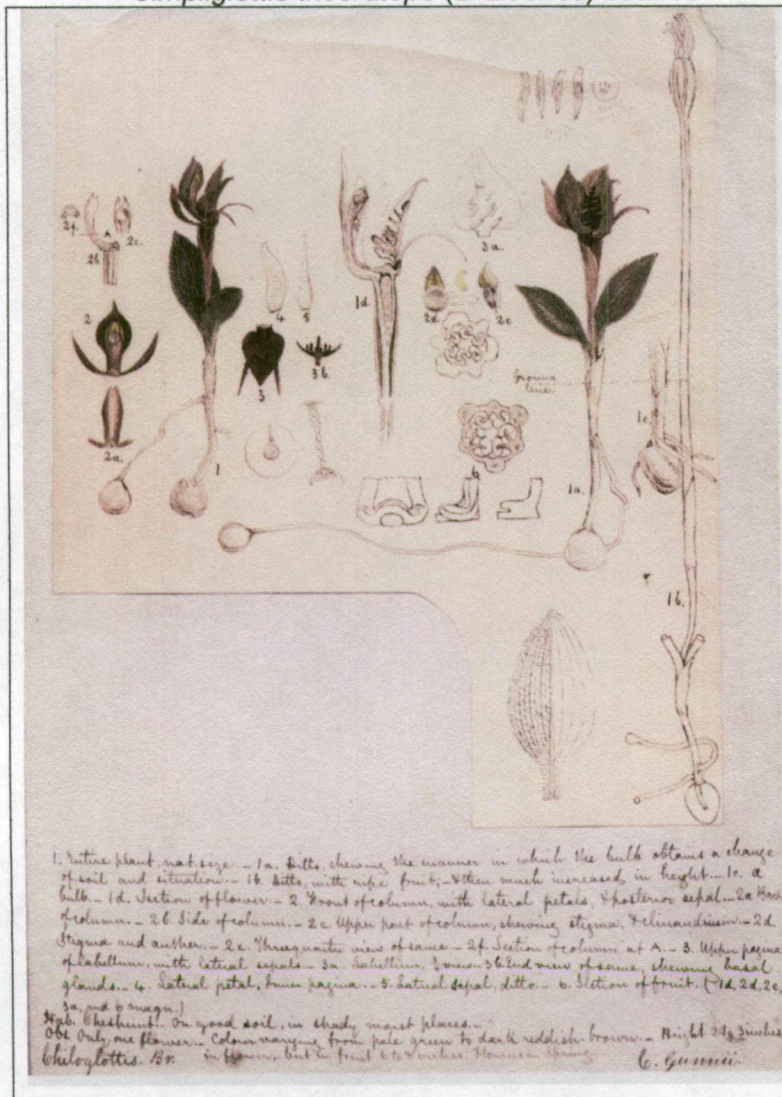 2f. 2c. A
2b
2
2a.
1
4 5
3 3b.
1d.
3a.
2d. 2e
6
Ground line.
1a.
1c.
1b.
1. Entire plant, nat size. - 1a. Ditto, shewing the manner in which the bulb obtains a change
of soil and situation. - 1b. Ditto, with ripe fruit, & then much increased in height. - 1c. a
bulb. - 1d. Section of flower. - 2 Front of column, with lateral petals, & posterior sepal. - 2a Back
of column. - 2b Side of column. - 2c. Upper part of column, shewing stigma, & clinandrium. - 2d.
Stigma and anther. - 2e. Threequarter view of same - 2f. Section of column at A. - 3. Upper pagina
of labellum, with lateral sepals. - 3a. Labellum, view. - 3b End view of same, shewing basal
glands. - 4. Lateral petal, inner pagina. - 5. Lateral sepal, ditto. - 6. Section of fruit. (1d, 2d, 2e,
3a, and 6 magn.)
Hab. Cheshunt. On good soil, in shady moist places. -
Obs. Only one flower. - Colour varying from pale green to dark reddish-brown. - Hight 2 to 3 inches
in flower, but in fruit 6 to 8 inches. Flowers in Spring
Chiloglottis. Br. C. Gunnii.